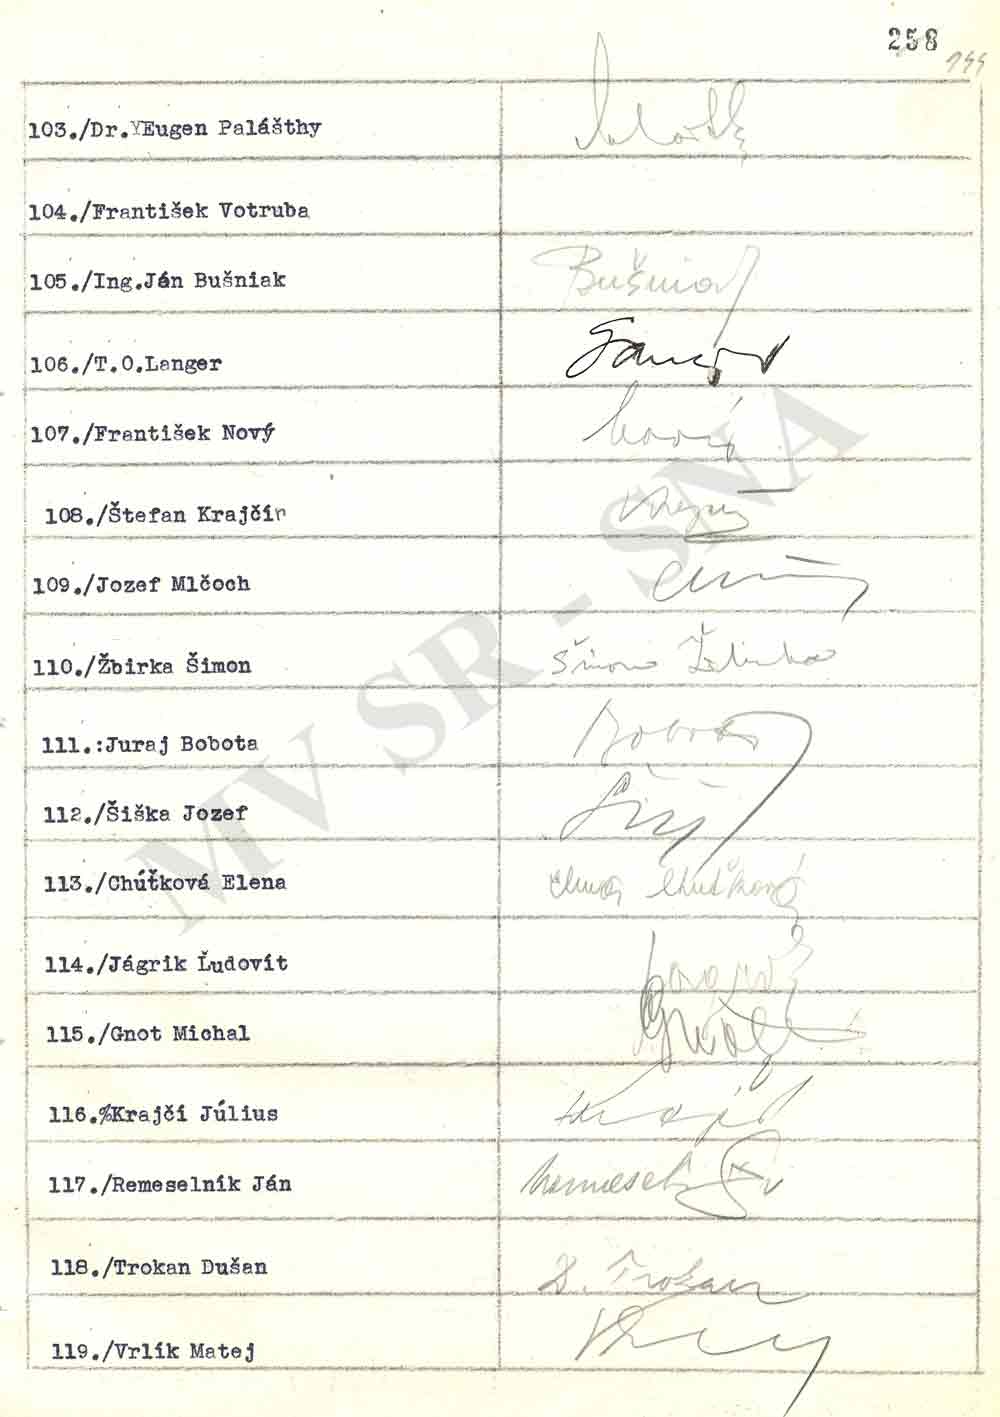 258
144
103./Dr. Eugen Palášthy
104./František Votruba
105./Ing.Ján Bušniak Bušniak
106./T.O.Langer
107./František Nový Nový
108./Štefan Krajčír
109./Jozef Mlčoch
110./Žbirka Šimon Šimon Žbirka
111.:Juraj Bobota Bobota
112./Šiška Jozef
113./Chúťková Elena Elena Chuťková
114./Jágrik Ľudovít
115./Gnot Michal Gnot
116.%Krajčí Július
117./Remeselník Ján
118./Trokan Dušan D. Trokan
119./Vrlík Matej
MV SR - SNA